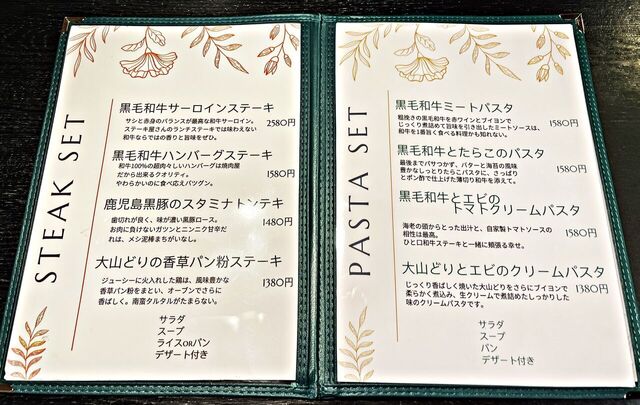 STEAK SET
黒毛和牛サーロインステーキ
サシと赤身のバランスが最高な和牛サーロイン。
ステーキ屋さんのランチステーキでは味わえない
和牛ならではの香りと旨味をぜひ。
2580円
黒毛和牛ハンバーグステーキ
和牛100%の超肉々しいハンバーグは焼肉屋
だから出来るクオリティ。
やわらかいのに食べ応えバツグン。
1580円
鹿児島黒豚のスタミナトンテキ
歯切れが良く、味が濃い黒豚ロース。
お肉に負けないガツンとニンニク甘辛だ
れは、メシ泥棒まちがいなし。
1480円
大山どりの香草パン粉ステーキ
ジューシーに火入れした鶏は、風味豊かな
香草パン粉をまとい、オーブンでさらに
香ばしく。南蛮タルタルがたまらない。
1380円
サラダ
スープ
ライスorパン
デザート付き
PASTA SET
黒毛和牛ミートパスタ
粗挽きの黒毛和牛を赤ワインとブイヨンで
じっくり煮詰めて旨味を引き出したミートソースは、
和牛を1番旨く食べる料理かも知れない。
1580円
黒毛和牛とたらこのパスタ
最後までパサつかず、バターと海苔の風味
豊かなしっとりたらこパスタに、さっぱり
とポン酢で仕上げた薄切り和牛を添えて。
1580円
黒毛和牛とエビの
トマトクリームパスタ
海老の頭からとった出汁と、自家製トマトソース
の相性は最高。
ひと口和牛ステーキと一緒に頬張る幸せ。
1580円
大山どりとエビのクリームパスタ
じっくり香ばしく焼いた大山どりをさらにブイヨンで
柔らかく煮込み、生クリームで煮詰めたしっかりした
味のクリームパスタです。
1380円
サラダ
スープ
パン
デザート付き